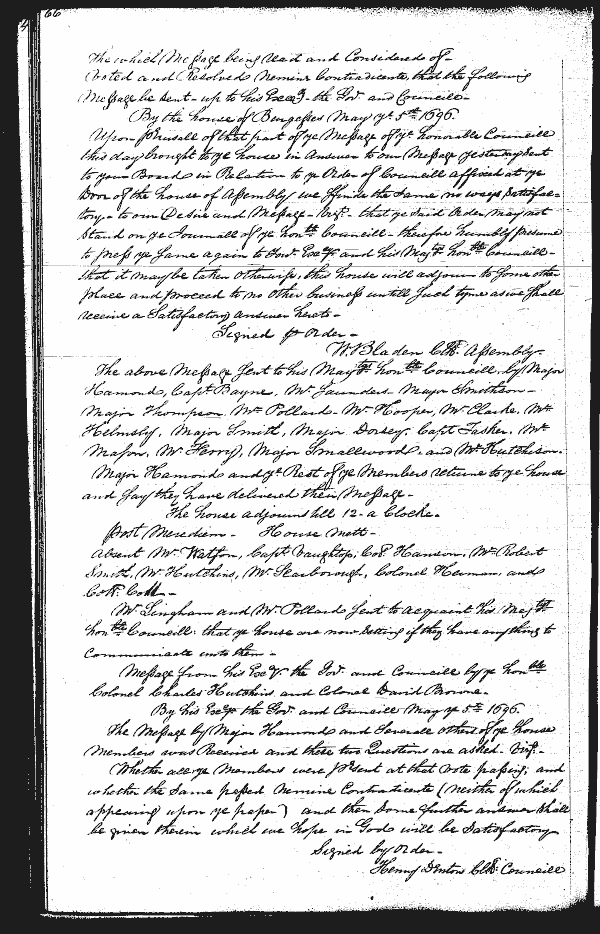 66
The which Message being read and Considered of -
Voted and Resolved Nemine Contradicente, that the following
Message be sent - up to his Excy. the Gov. and Councill -
By the house of Burgesses May ye. 5th. 1696.
Upon perusall of that part of ye Message of ye. honorable Councill
this day brought to ye house in Answer to our Message yesterday sent
to your Board in Relation to ye Order of Councill affixed at ye
Door of the house of Assembly we ffinde the Same no ways Satisfac-
tory - to our Desire and Message - vizt. - that ye said Order may not
Stand on ye Journall of ye honble Councill - therefore humbly presume
to press ye Same again to his Excy. and his Majtys honble Councill -
that it may be taken otherwise, this house will adjourn to Some other
place and proceed to no other business untill Such tyme as we Shall
receive a Satisfactory answer hereto -
Signed p order -
W. Bladen Clk. Assembly.
The above Message Sent to his Majtys honble Councill, by Major
Hamond, Capt Bayne, Mr Saunders Major Smithson -
Major Thompson, Mr Pollard Mr Hooper, Mr Clarke, Mr
Helmsly, Major Smith, Major Dorsey, Capt Tasker, Mr
Mason, Mr Ferry, Major Smallwood, and Mr Hutchison.
Major Hamond and ye Rest of ye Members returne to ye house
and say they have delivered their Message -
The house adjourns till 12 - a Clocke -
Post Meridiem - House Mett -
absent Mr Watson, Capt Vaughtop, Col. Hanson, Mr Robert
Smith, Mr Hutchins, Mr Scarborough, Colonel Herman, and
Coll.
Mr Lingham and Mr Pollard Sent to acquaint his Majtys
honble Councill: that ye house are now Setting if they have anything to
Communicate unto them -
Message from his Excy. the Gov. and Councill by ye honble
Colonel Charles Hutchins and Colonel David Browne.
By his Excy the Gov. and Councill May ye 5th 1696.
The Message by Major Hamond and Severall others of ye house
Members was Received and these two Questions are asked. vizt. -
Whether all ye Members were p'sent at that Vote passing; and
whether the Same passed Nemine Contradicente (neither of which
appearing upon ye paper) and then Some further answer Shall
be given therein which we hope in God will be Satisfactory
Signed by Order -
Henry Denton Clk: Councill